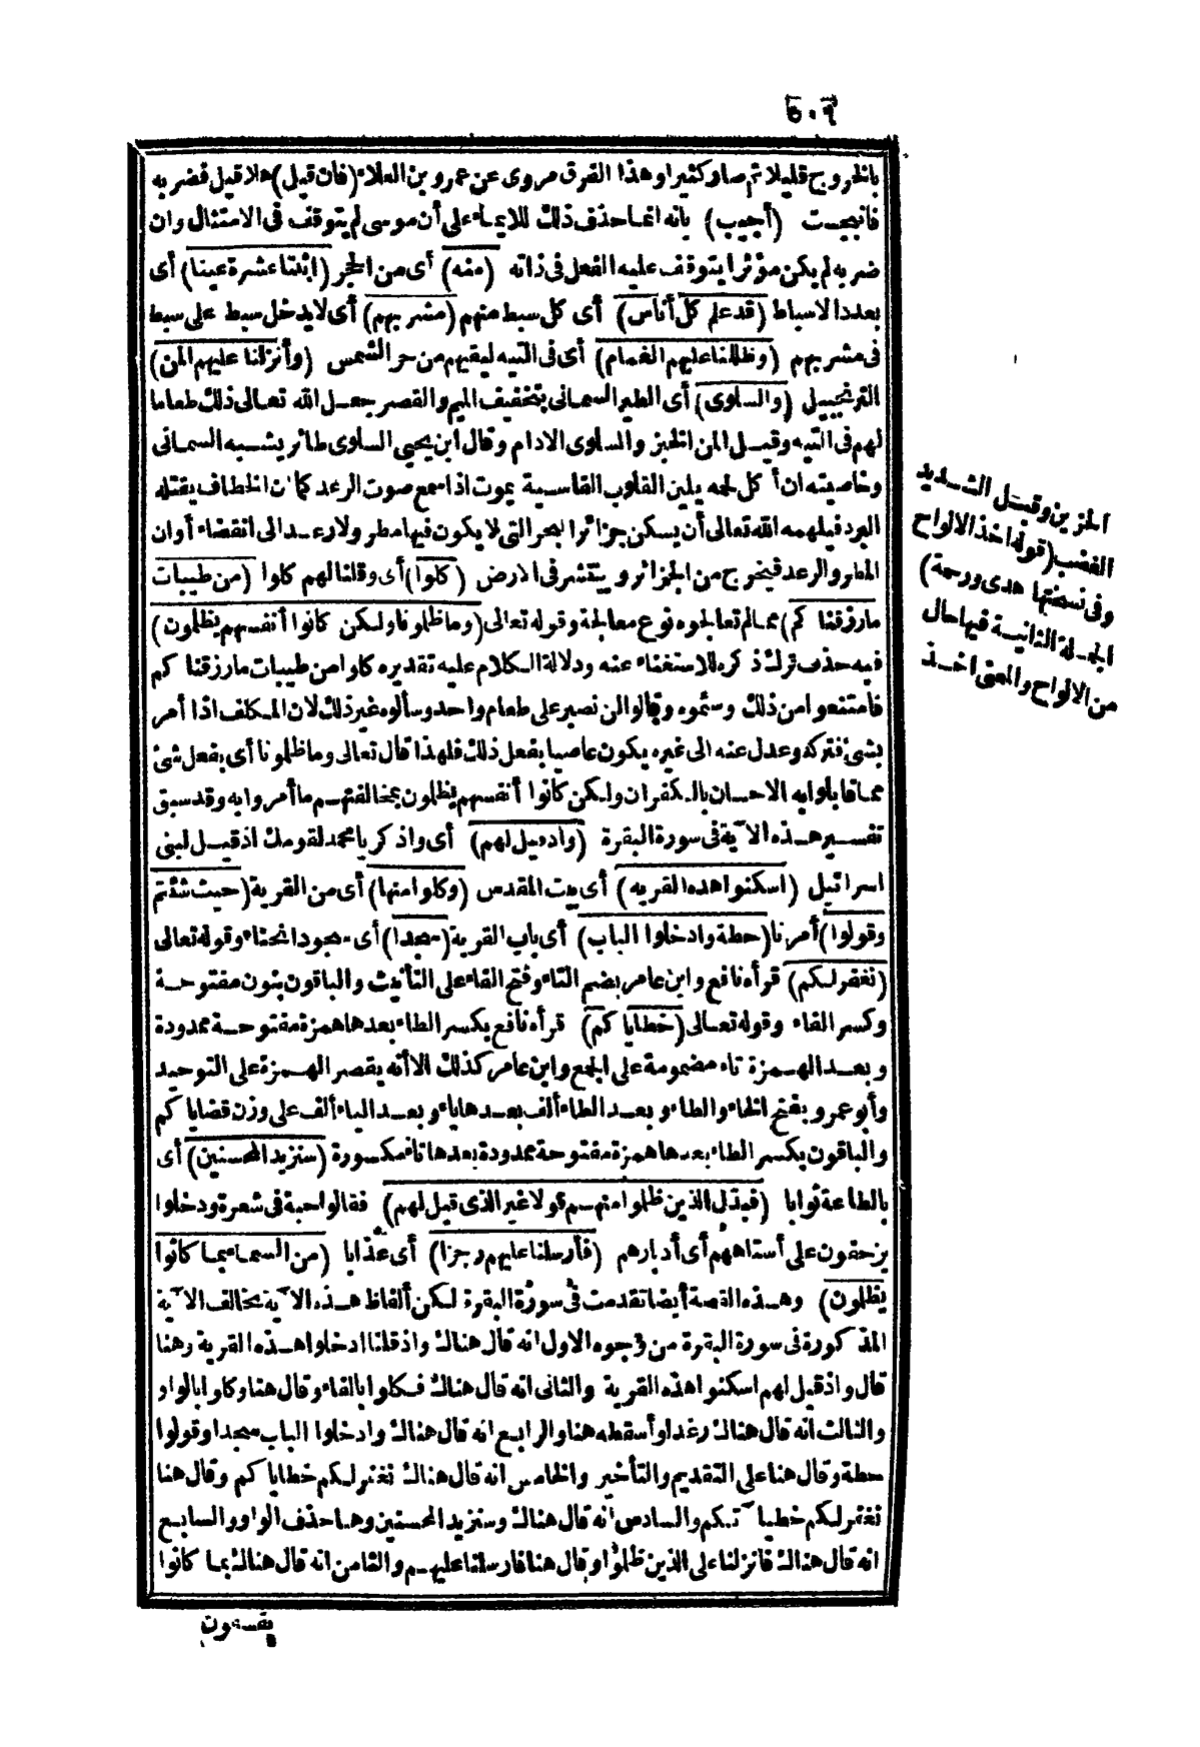 ٥٠٩
بالخروج قليلا ثم صار كثيرا وهذا الفرق مروى عن عمرو بن العلاء (فان قيل) هلا قيل فضربه
فانبجست (أجيب) بانه انما حذف ذلك للايماء على أن موسى لم يتوقف فى الامتثال وان
ضربه لم يكن مؤثرا يتوقف عليه الفعل فى ذاته (منه) أى من الحجر (اثنتا عشرة عينا) أى
بعدد الاسباط (قد علم كل أناس) أى كل سبط منهم (مشربهم) أى لا يدخل سبط على سبط
فى مشربهم (وظللنا عليهم الغمام) أى فى التيه ليقيهم من حر الشمس (وأنزلنا عليهم المن)
الترنجبيل (والسلوى) أى الطير السمانى بتخفيف الميم والقصر جعل الله تعالى ذلك طعاما
لهم فى التيه وقيل المن الخبز والسلوى الادام وقال ابن يحيى السلوى طائر يشبه السمانى
وخاصيته ان أكل لحمه يلين القلوب القاسية يموت اذا سمع صوت الرعد كما ان الخطاف يقتله
البرد فيلهمه الله تعالى أن يسكن جزائر البحر التى لا يكون فيها مطر ولا رعد الى انقضاء أوان
المطر والرعد فيخرج من الجزائر وينتشر فى الارض (كلوا) أى وقلنا لهم كلوا (من طيبات
ما رزقناكم) مما لم تعالجوه نوع معالجة وقوله تعالى (وما ظلمونا ولكن كانوا أنفسهم يظلمون)
فيه حذف ترك ذكره للاستغناء عنه ودلالة الكلام عليه تقديره كلوا من طيبات ما رزقناكم
فامتنعوا من ذلك وسئموه وقالوا لن نصبر على طعام واحد وسألوه غير ذلك لان المكلف اذا أمر
بشئ فتركه وعدل عنه الى غيره يكون عاصيا بفعل ذلك فلهذا قال تعالى وما ظلمونا أى بفعل شئ
مما قابلوا به الاحسان بالكفران ولكن كانوا أنفسهم يظلمون بمخالفتهم ما أمروا به وقد سبق
تفسير هذه الآية فى سورة البقرة (واذ قيل لهم) أى واذكر يا محمد لقومك اذ قيل لبنى
اسرائيل (اسكنوا هذه القرية) أى بيت المقدس (وكلوا منها) أى من القرية (حيث شئتم
وقولوا) أمرنا (حطة وادخلوا الباب) أى باب القرية (سجدا) أى سجود انحناء وقوله تعالى
(نغفر لكم) قرأه نافع وابن عامر بضم التاء وفتح الفاء على التأنيث والباقون بنون مفتوحة
وكسر الفاء وقوله تعالى (خطاياكم) قرأه نافع بكسر الطاء بعدها همزة مفتوحة ممدودة
وبعد الهمزة تاء مضمومة على الجمع وابن عامر كذلك الا أنه يقصر الهمزة على التوحيد
وأبو عمرو بفتح الخاء والطاء وبعد الطاء ألف بعدها ياء وبعد الياء ألف على وزن قضاياكم
والباقون بكسر الطاء بعدها همزة مفتوحة ممدودة بعدها تاء مكسورة (سنزيد المحسنين) أى
بالطاعة ثوابا (فبدل الذين ظلموا منهم قولا غير الذى قيل لهم) فقالوا حبة فى شعرة ودخلوا
يزحفون على أستاههم أى أدبارهم (فأرسلنا عليهم رجزا) أى عذابا (من السماء بما كانوا
يظلمون) وهذه القصة أيضا تقدمت فى سورة البقرة لكن ألفاظ هذه الآية تخالف الآية
المذكورة فى سورة البقرة من وجوه الاول انه قال هناك واذ قلنا ادخلوا هذه القرية وهنا
قال واذ قيل لهم اسكنوا هذه القرية والثانى انه قال هناك فكلوا بالفاء وقال هنا وكلوا بالواو
والثالث انه قال هناك رغدا وأسقطه هنا والرابع انه قال هناك وادخلوا الباب سجدا وقولوا
حطة وقال هنا على التقديم والتأخير والخامس انه قال هناك نغفر لكم خطاياكم وقال هنا
نغفر لكم خطيآتكم والسادس انه قال هناك وسنزيد المحسنين وهنا حذف الواو والسابع
انه قال هناك فانزلنا على الذين ظلموا وقال هنا فارسلنا عليهم والثامن انه قال هناك بما كانوا
يفسقون
الحزين وقيل الشديد
الغضب (قوله اخذ الالواح
وفى نسختها هدى ورحمة)
الجملة الثانية فيها حال
من الالواح والمعنى اخذ